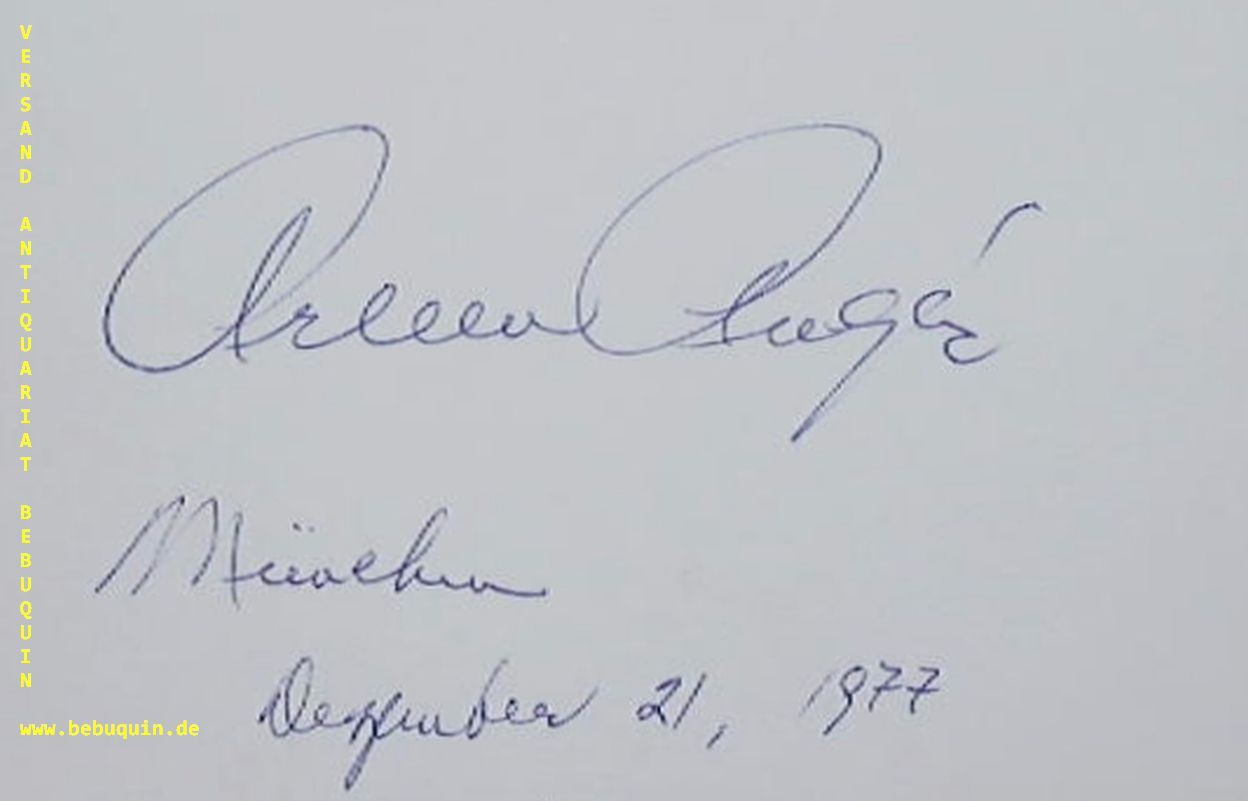 VERSAND ANTIQUARIAT BEBUQUIN
www.bebuquin.de
München
Dezember 21, 1977